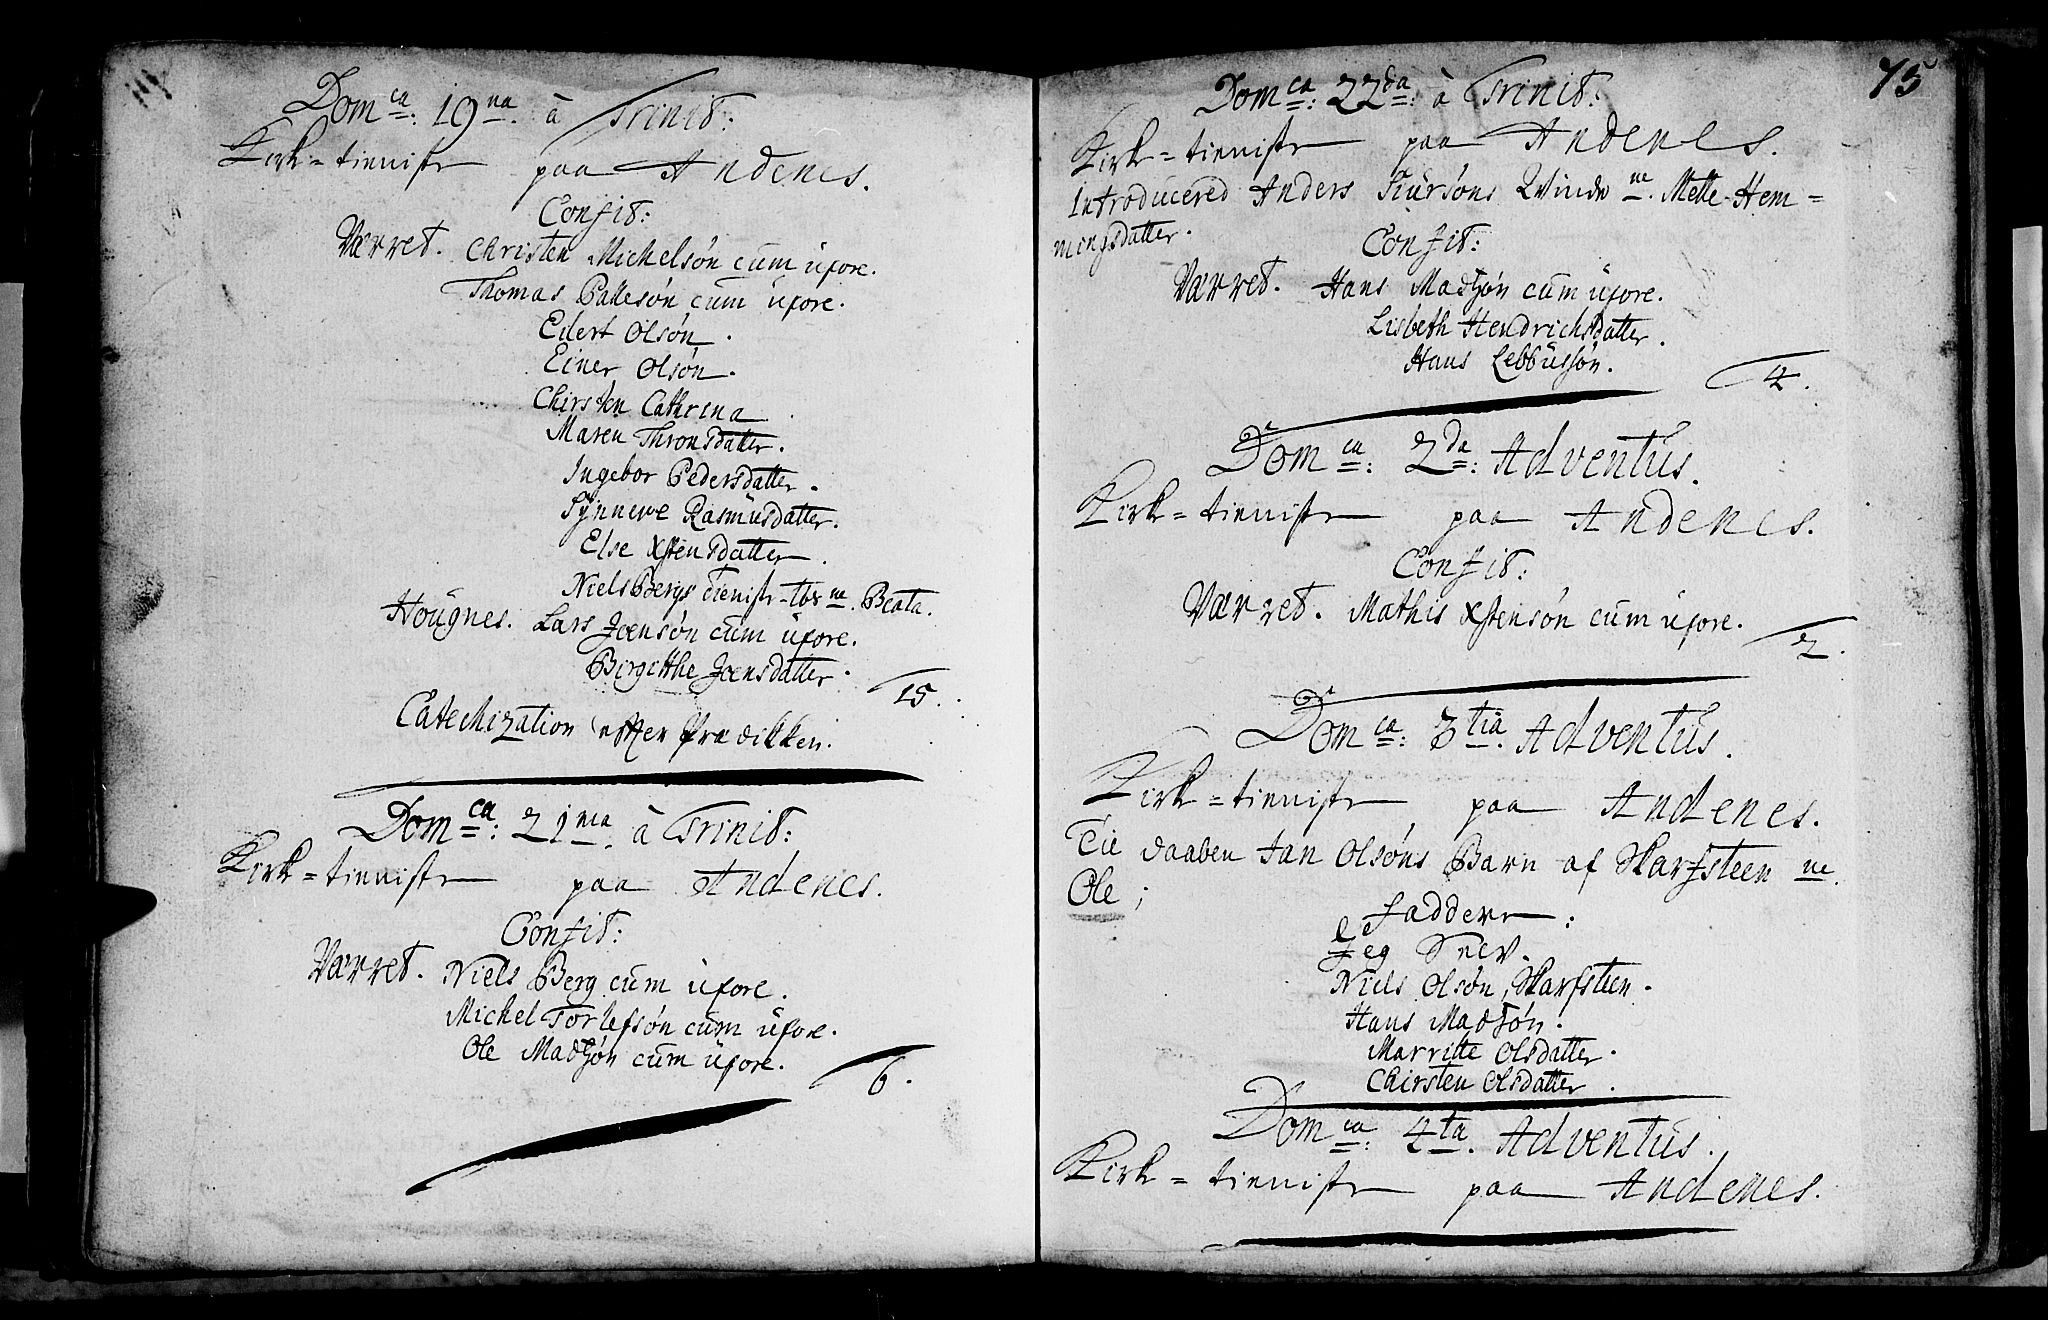 Dom ca: 19 na. à Trinit:
Kirk=tieniste paa Andenes.
Confit:
Værret. Christen Michelsøn cum uxore.
Thomas Pallesøn cum uxore.
Eilert Olsøn.
Einer Olsøn.
Chirsten Cathrina
Maren Thronsdatter.
Ingebor Pedersdatter.
Synneve Rasmusdatter.
Else Xstensdatter.
Niels Bergs tieniste-tøs ne. Beata.
Hougnes. Lars Joensøn cum uxore.
Birgitthe Joensdatter.
15.
Catechization efter Prædikken.
Dom ca: 21 ma. à Trinit:
Kirk=tieniste paa Andenes.
Confit:
Værret. Niels Berg cum uxore.
Michel Torlefsøn cum uxore.
Ole Madtzøn cum uxore.
6.
75
Dom ca: 22 da: à Trinit:
Kirk=tieniste paa Andenes.
Introducered Anders Siursøns Qvinde ne. Mette Hem=
mingsdatter.
Confit:
Værret. Hans Madtzøn cum uxore.
Lisbeth Hendrichsdatter.
Hans Lebbussøn.
4.
Dom ca: 2 da: Adventus.
Kirk=tieniste paa Andenes.
Confit:
Værret. Mathis Xstensøn cum uxore.
2.
Dom ca: 3 tia. Adventus.
Kirk=tieniste paa Andenes.
Til daaben Jan Olsøns Barn af Skarfsteen ne.
Ole;
Faddere:
Jeg Selv.
Niels Olsøn, Skarfsteen.
Hans Madtzøn.
Marritte Olsdatter.
Chirsten Olsdatter.
Dom ca: 4 ta. Adventus.
Kirk=tieniste paa Andenes.